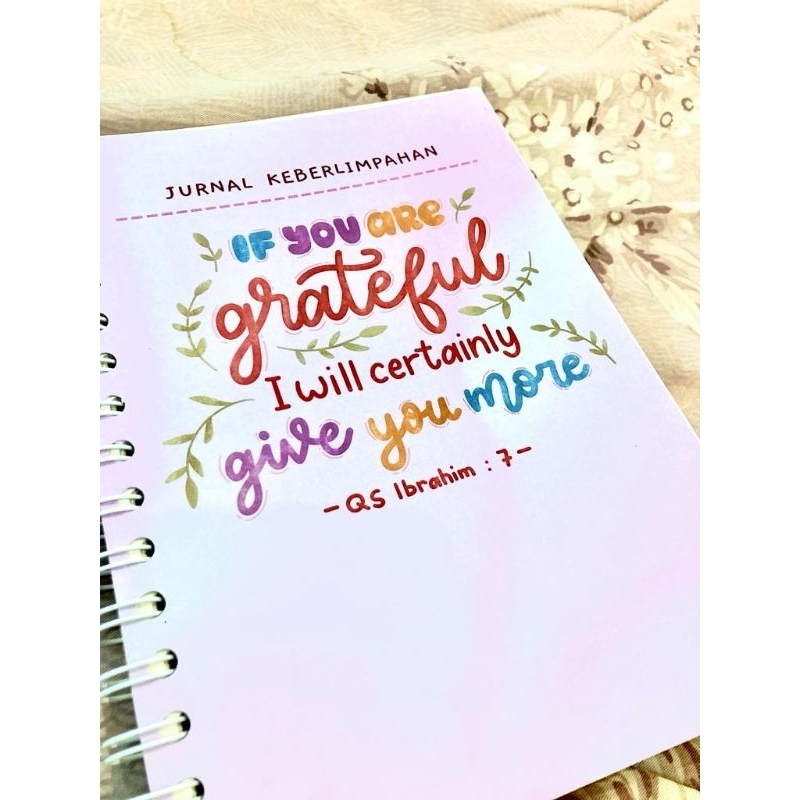 JURNAL KEBERLIMPAHAN
IF YOU ARE
grateful
I will certainly
give you more
- QS Ibrahim : 7 -